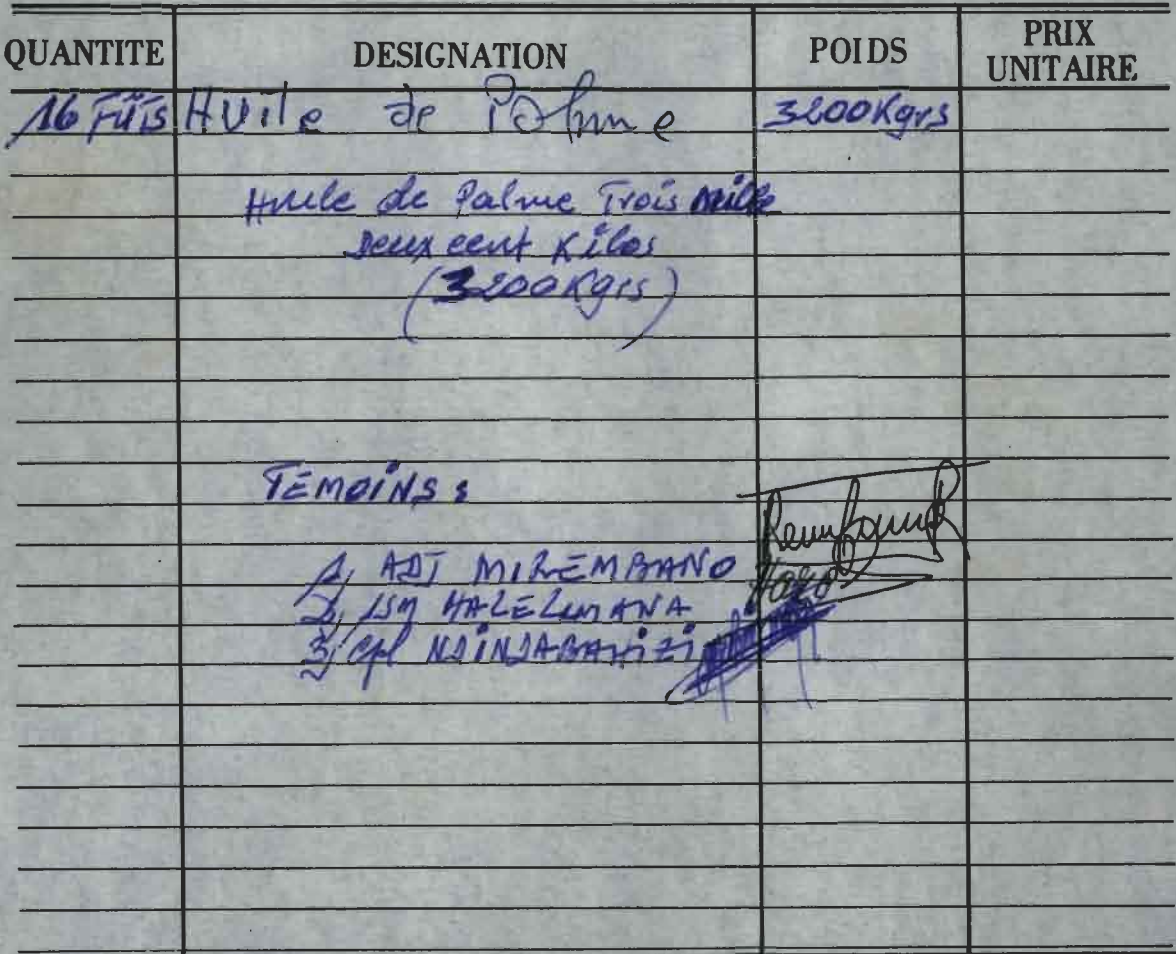 QUANTITE DESIGNATION POIDS PRIX UNITAIRE
16 FÛTS HUile de Palme 3200Kgrs
Huile de Palme Trois mille
Deux cent Kilos
(3200Kgrs)
TÉMOINS :
1, ADJ MIREMBANO
2, 1SM HALELIMANA
3, Cpl NDINDABAHIZI